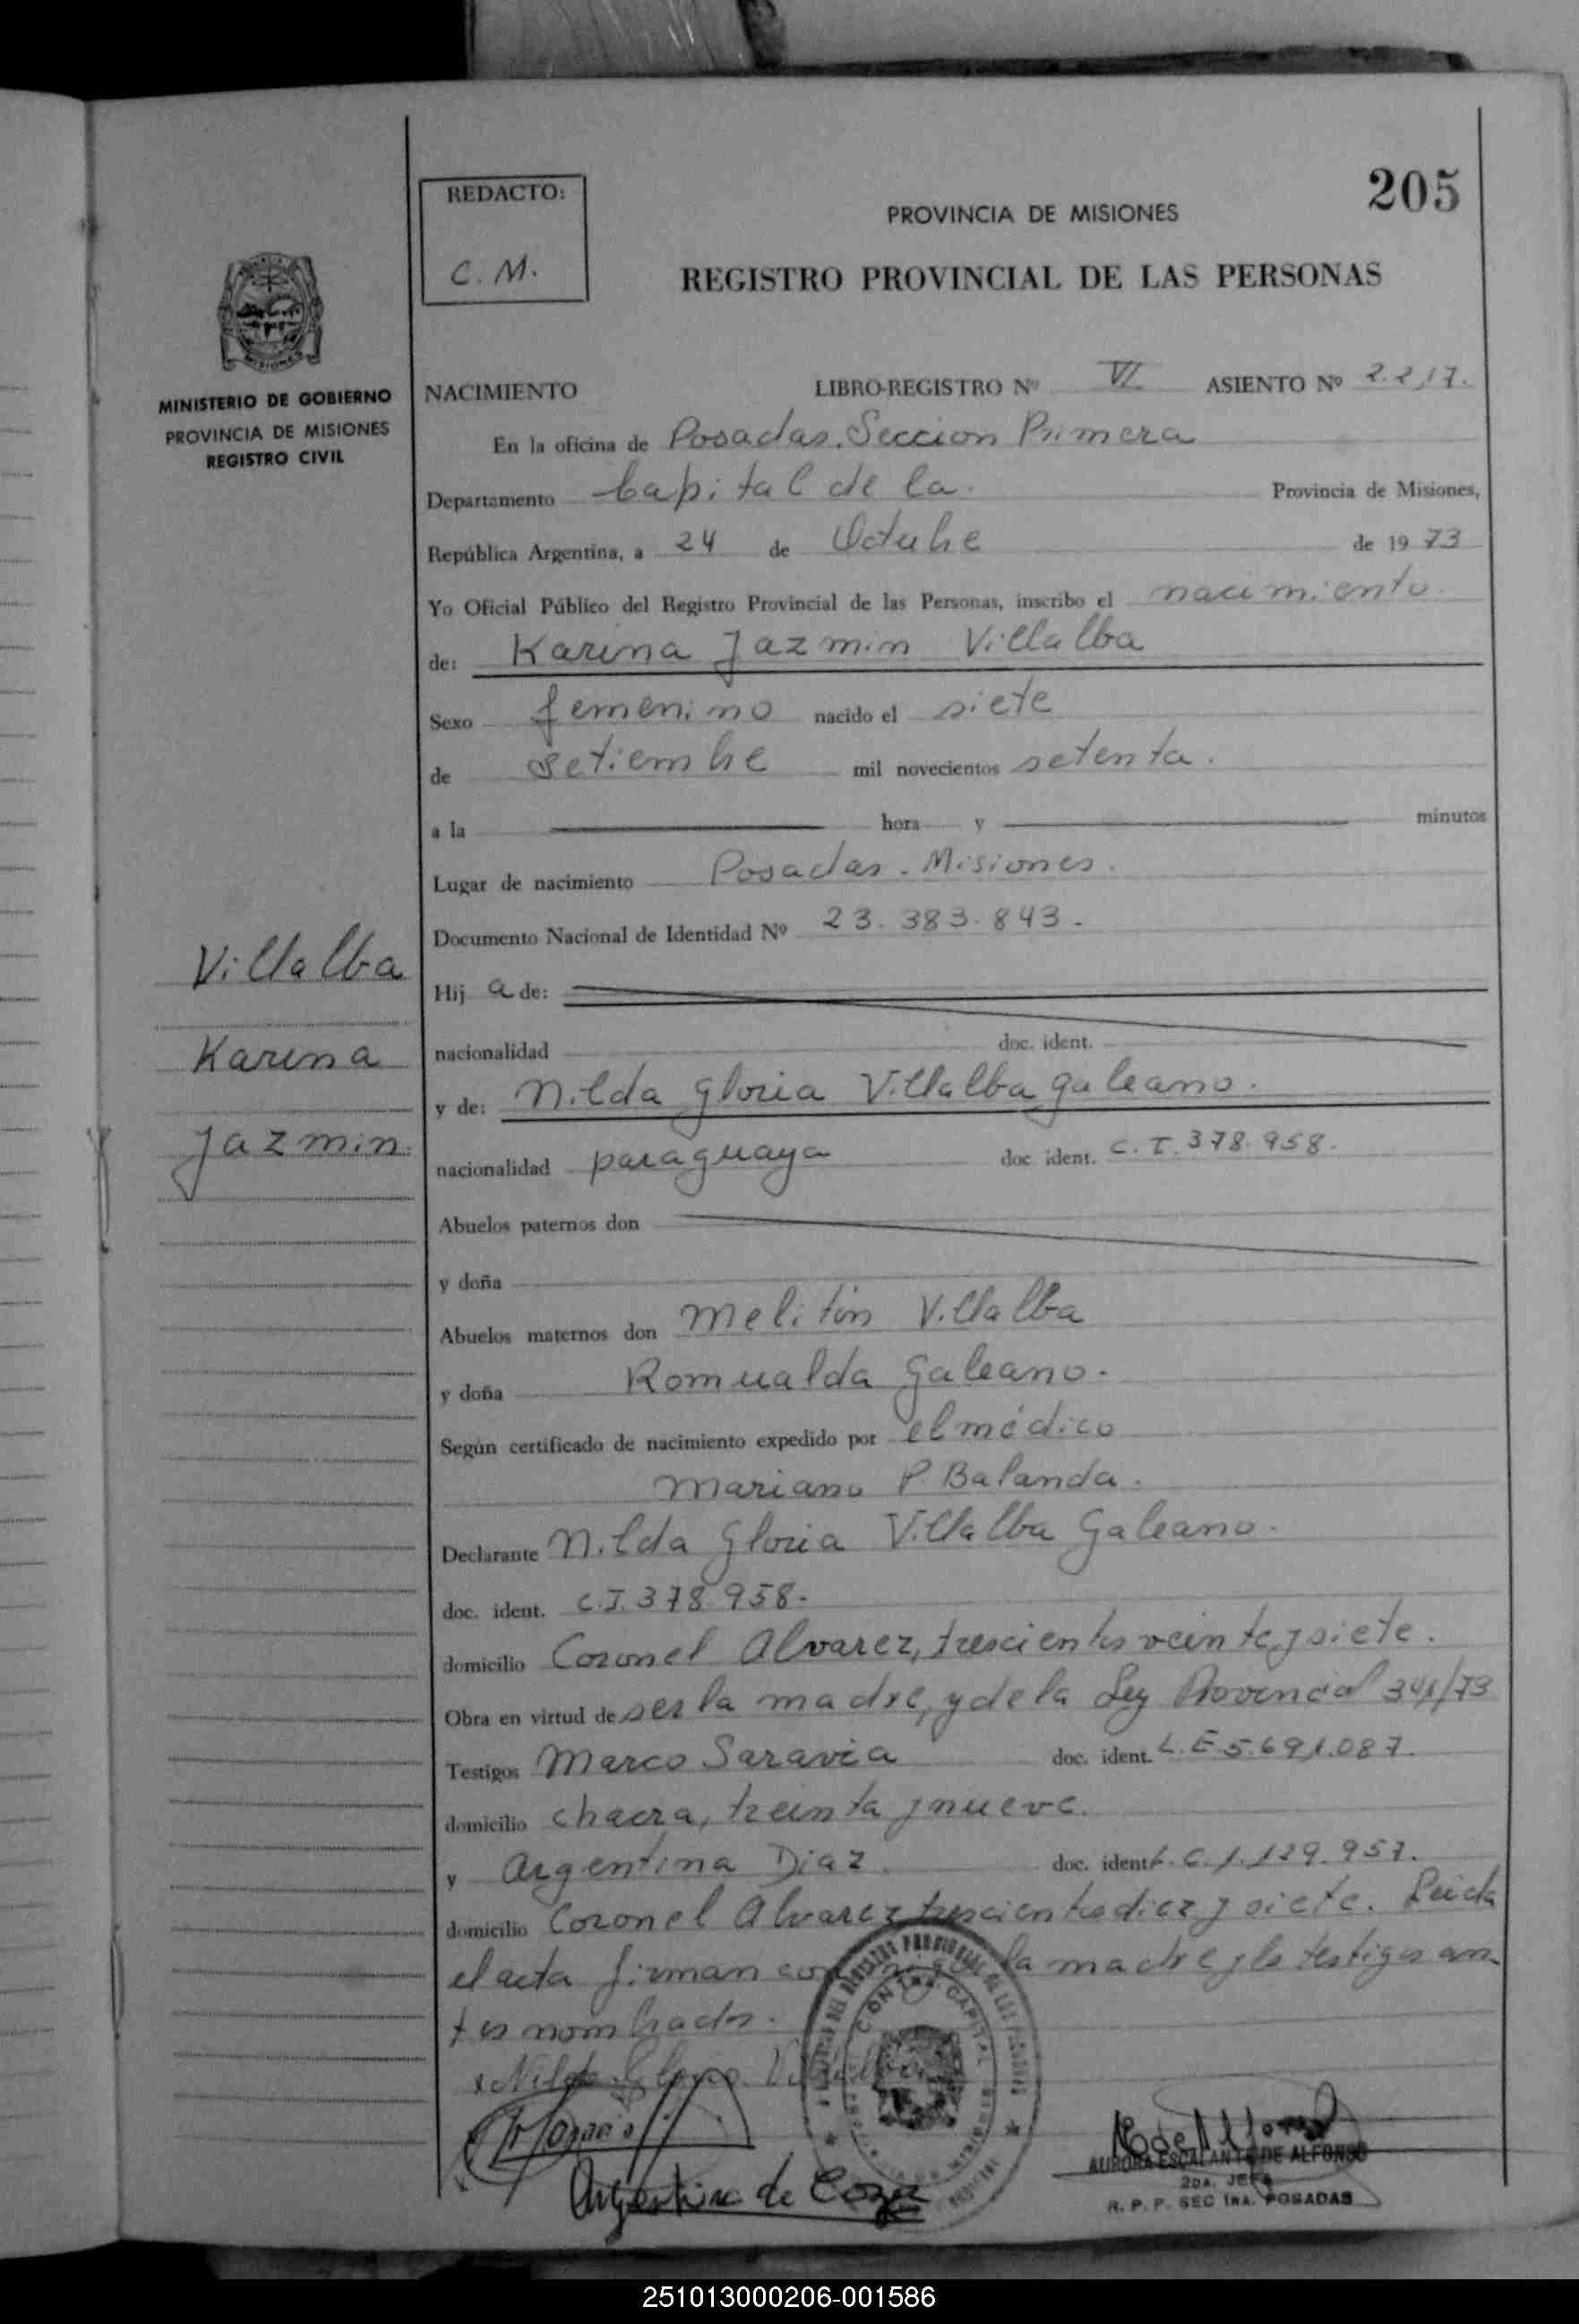 REDACTO:
C. M.
205
PROVINCIA DE MISIONES
REGISTRO PROVINCIAL DE LAS PERSONAS
MISIONES
MINISTERIO DE GOBIERNO
PROVINCIA DE MISIONES
REGISTRO CIVIL
NACIMIENTO LIBRO-REGISTRO Nº VI ASIENTO Nº 2.217.
En la oficina de Posadas. Seccion Primera
Departamento Capital de la. Provincia de Misiones,
República Argentina, a 24 de Octubre de 1973
Yo Oficial Público del Registro Provincial de las Personas, inscribo el nacimiento
de: Karina Jazmin Villalba
Sexo femenino nacido el siete
de setiembre mil novecientos setenta.
a la hora y minutos
Lugar de nacimiento Posadas - Misiones.
Documento Nacional de Identidad Nº 23.383.843.-
Villalba
Karina
Jazmin.
Hij a de:
nacionalidad doc. ident.
y de: Nilda Gloria Villalba Galeano.
nacionalidad paraguaya doc ident. C.I. 378.958.
Abuelos paternos don
y doña
Abuelos maternos don Melitón Villalba
y doña Romualda Galeano.
Según certificado de nacimiento expedido por el médico
Mariano P. Balanda.
Declarante Nilda Gloria Villalba Galeano.
doc. ident. C.I. 378.958.-
domicilio Coronel Alvarez, trescientos veinte y siete.
Obra en virtud de ser la madre, y de la Ley Provincial 341/73
Testigos Marco Saravia doc. ident. L.E 5.691.087.
domicilio chacra, treinta y nueve.
y Argentina Diaz. doc. ident L.C. 1.129.957.
domicilio Coronel Alvarez trescientos diez y siete. Leida
el acta firman conmigo la madre y los testigos an-
tes nombrados.
x Nilda Gloria Villalba
Argentina de
AURORA ESCALANTE DE ALFONSO
2DA. JEFA
R. P. P. SEC 1RA. POSADAS
251013000206-001586